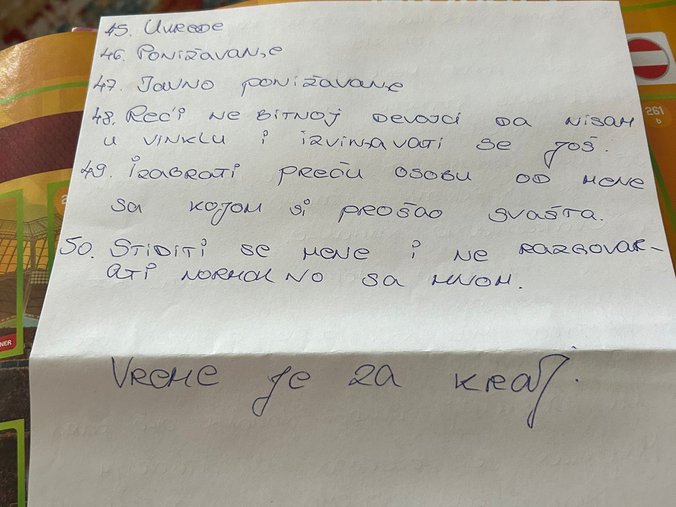 45. Uvrede
46. Ponižavanje
47. Javno ponižavanje
48. Reći ne bitnoj devojci da nisam
u vinklu i izvinjavati se još.
49. Izabrati preču osobu od mene
sa kojom si prošao svašta.
50. Stiditi se mene i ne razgovar-
ati normalno sa mnom.
Vreme je za kraj.
261